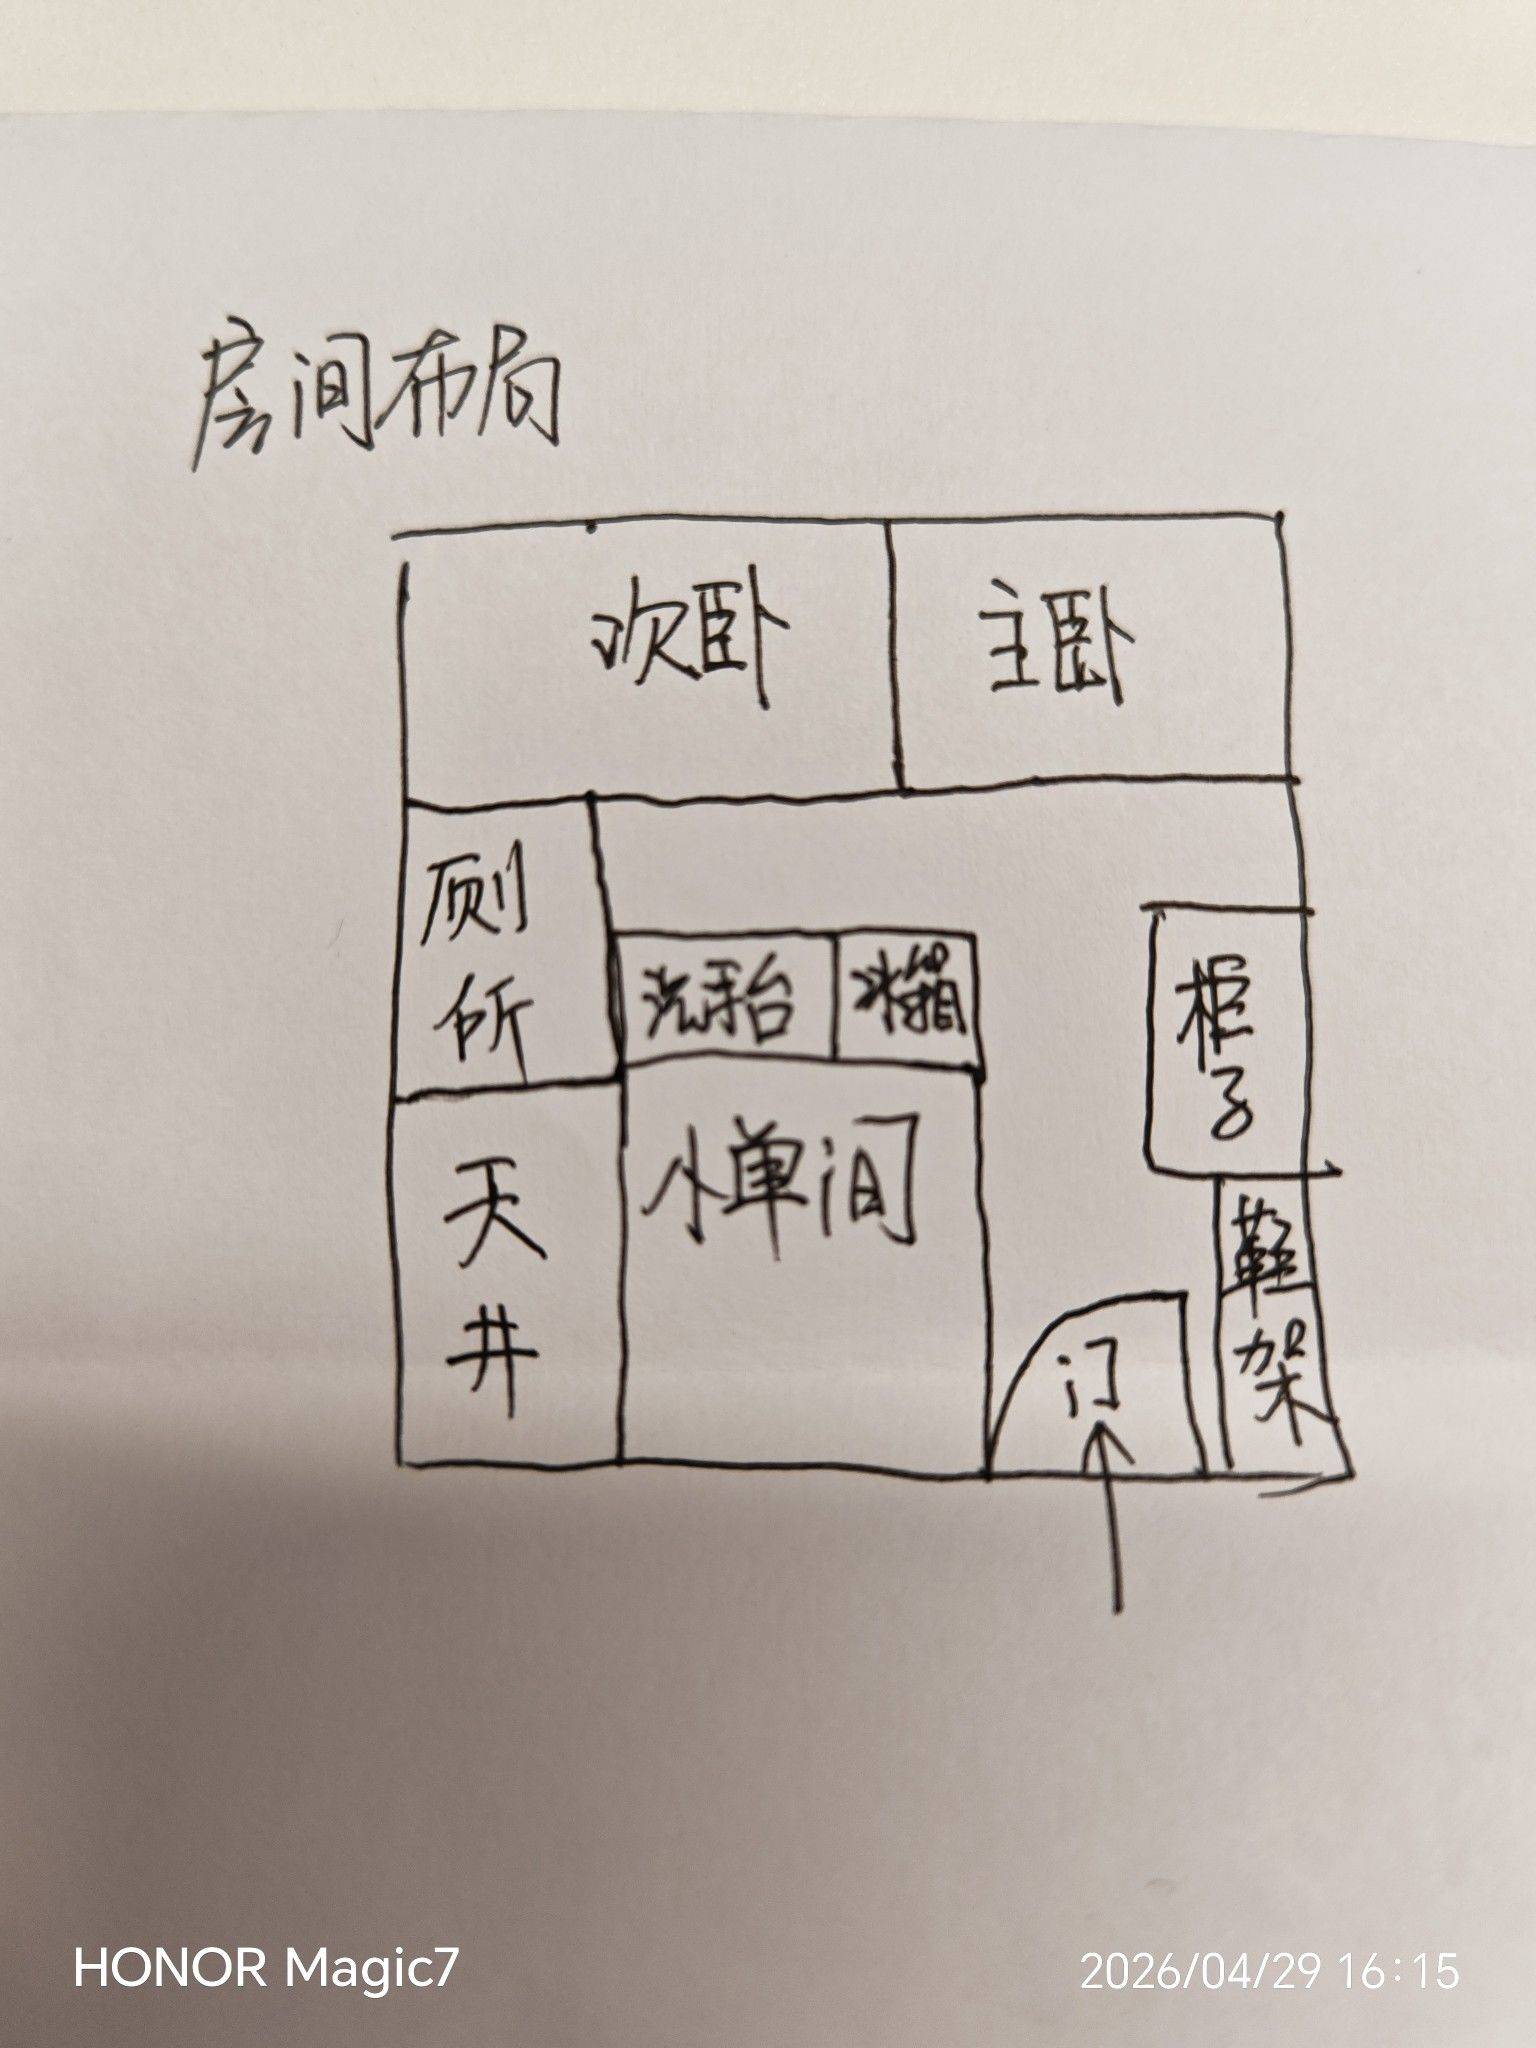 房间布局
次卧 主卧
厕所
洗手台 冰箱
柜子
小单间
天井
鞋架
门
HONOR Magic7
2026/04/29 16:15